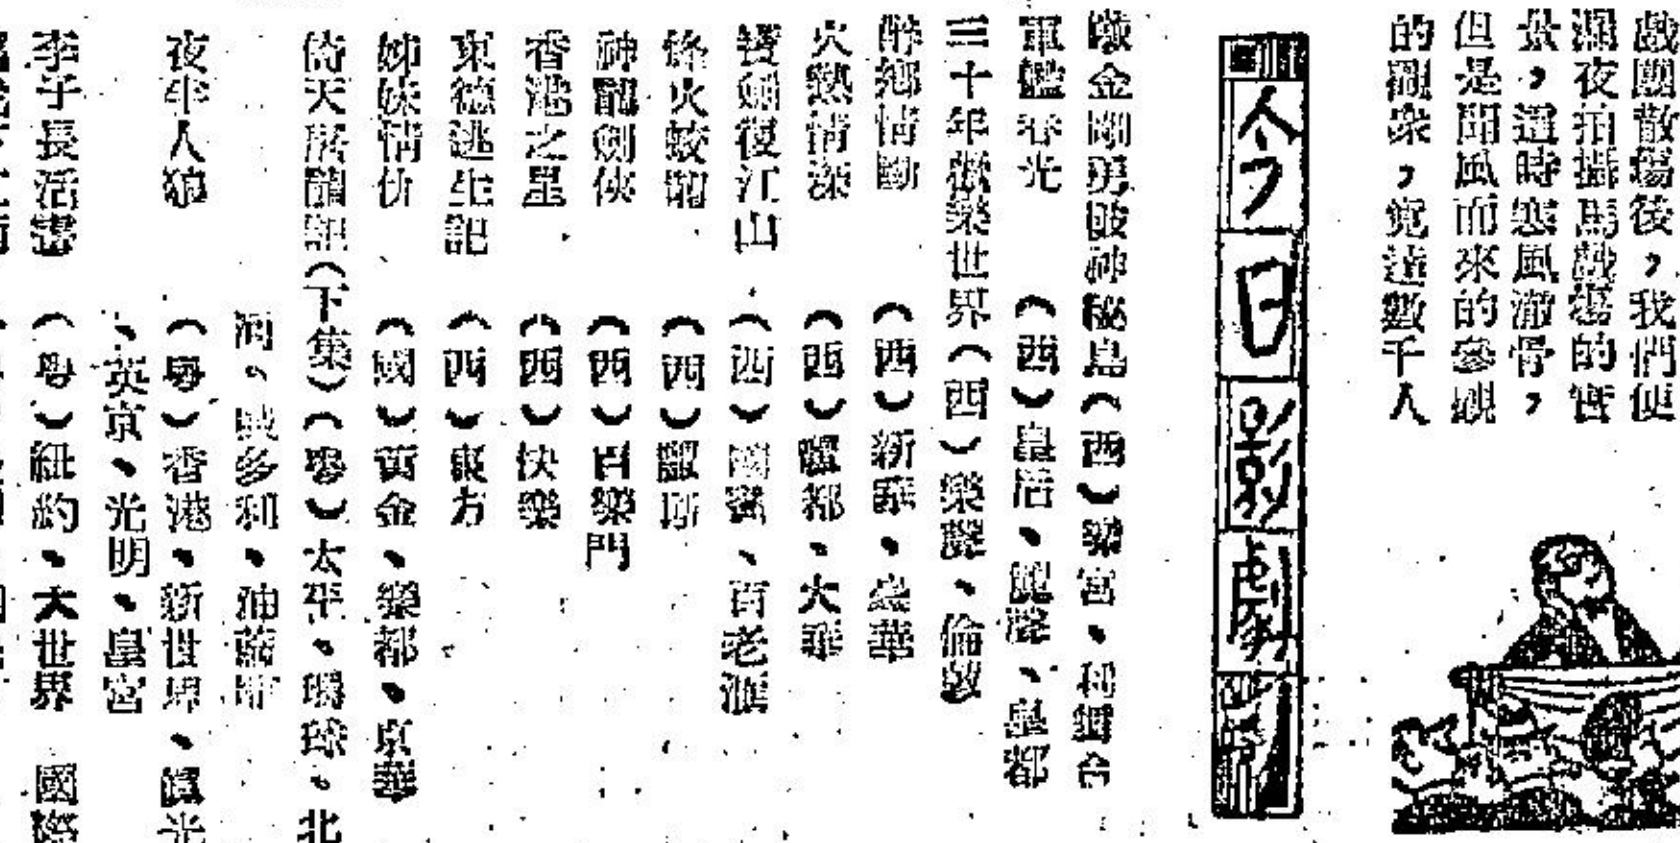 戲團散場後，我們便
漏夜拍攝馬戲場的實
景，這時寒風澈骨，
但是聞風而來的參觀
的觀衆，竟達數千人
今日影劇
金剛勇破神秘島（西）樂宮、利舞台
軍艦春光（西）皇后、凱聲、皇都
三十年歡樂世界（西）樂聲、倫敦
醉鄉情動（西）新華、嘉華
火熱情深（西）麗都、大華
寶劍復江山（西）國賓、百老滙
烽火蛟龍（西）麗斯
神龍劍俠（西）百樂門
香港之星（西）快樂
東德逃生記（西）東方
姊妹情仇（國）黃金、樂都、京華
倚天屠龍記（下集）（粵）太平、環球、北
河、域多利、油蔴地
夜半人狼（粵）香港、新世界、國光
、英京、光明、皇宮
李子長活書（粵）紐約、大世界 國際